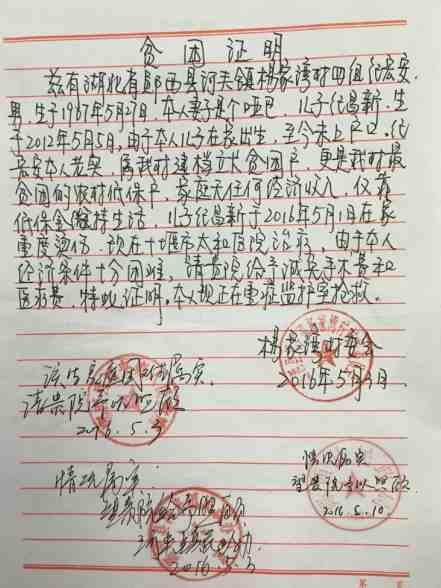 贫困证明
兹有湖北省郧西县河夹镇杨家湾村四组纪宏安,
男,生于1987年5月27日,本人妻子是个哑巴,儿子纪昌新,生
于2012年5月5日,由于本人儿子在家出生,至今未上户口,纪
宏安本人老实,属我村建档立卡贫困户,更是我村最
贫困的农村低保户,家庭无任何经济收入,仅靠
低保金维持生活,儿子纪昌新于2016年5月1日在家
重度烫伤,现在十堰市太和医院治疗,由于本人
经济条件十分困难,请贵院给予减免手术费和
医药费,特此证明,本人现正在重症监护室抢救。
杨家湾村委会
2016年5月3日
该生家庭困难属实,
请贵院予以照顾
2016.5.3
情况属实
望贵院予以照顾
2016.5.10
情况属实
望贵院给予照顾
2016.5.3